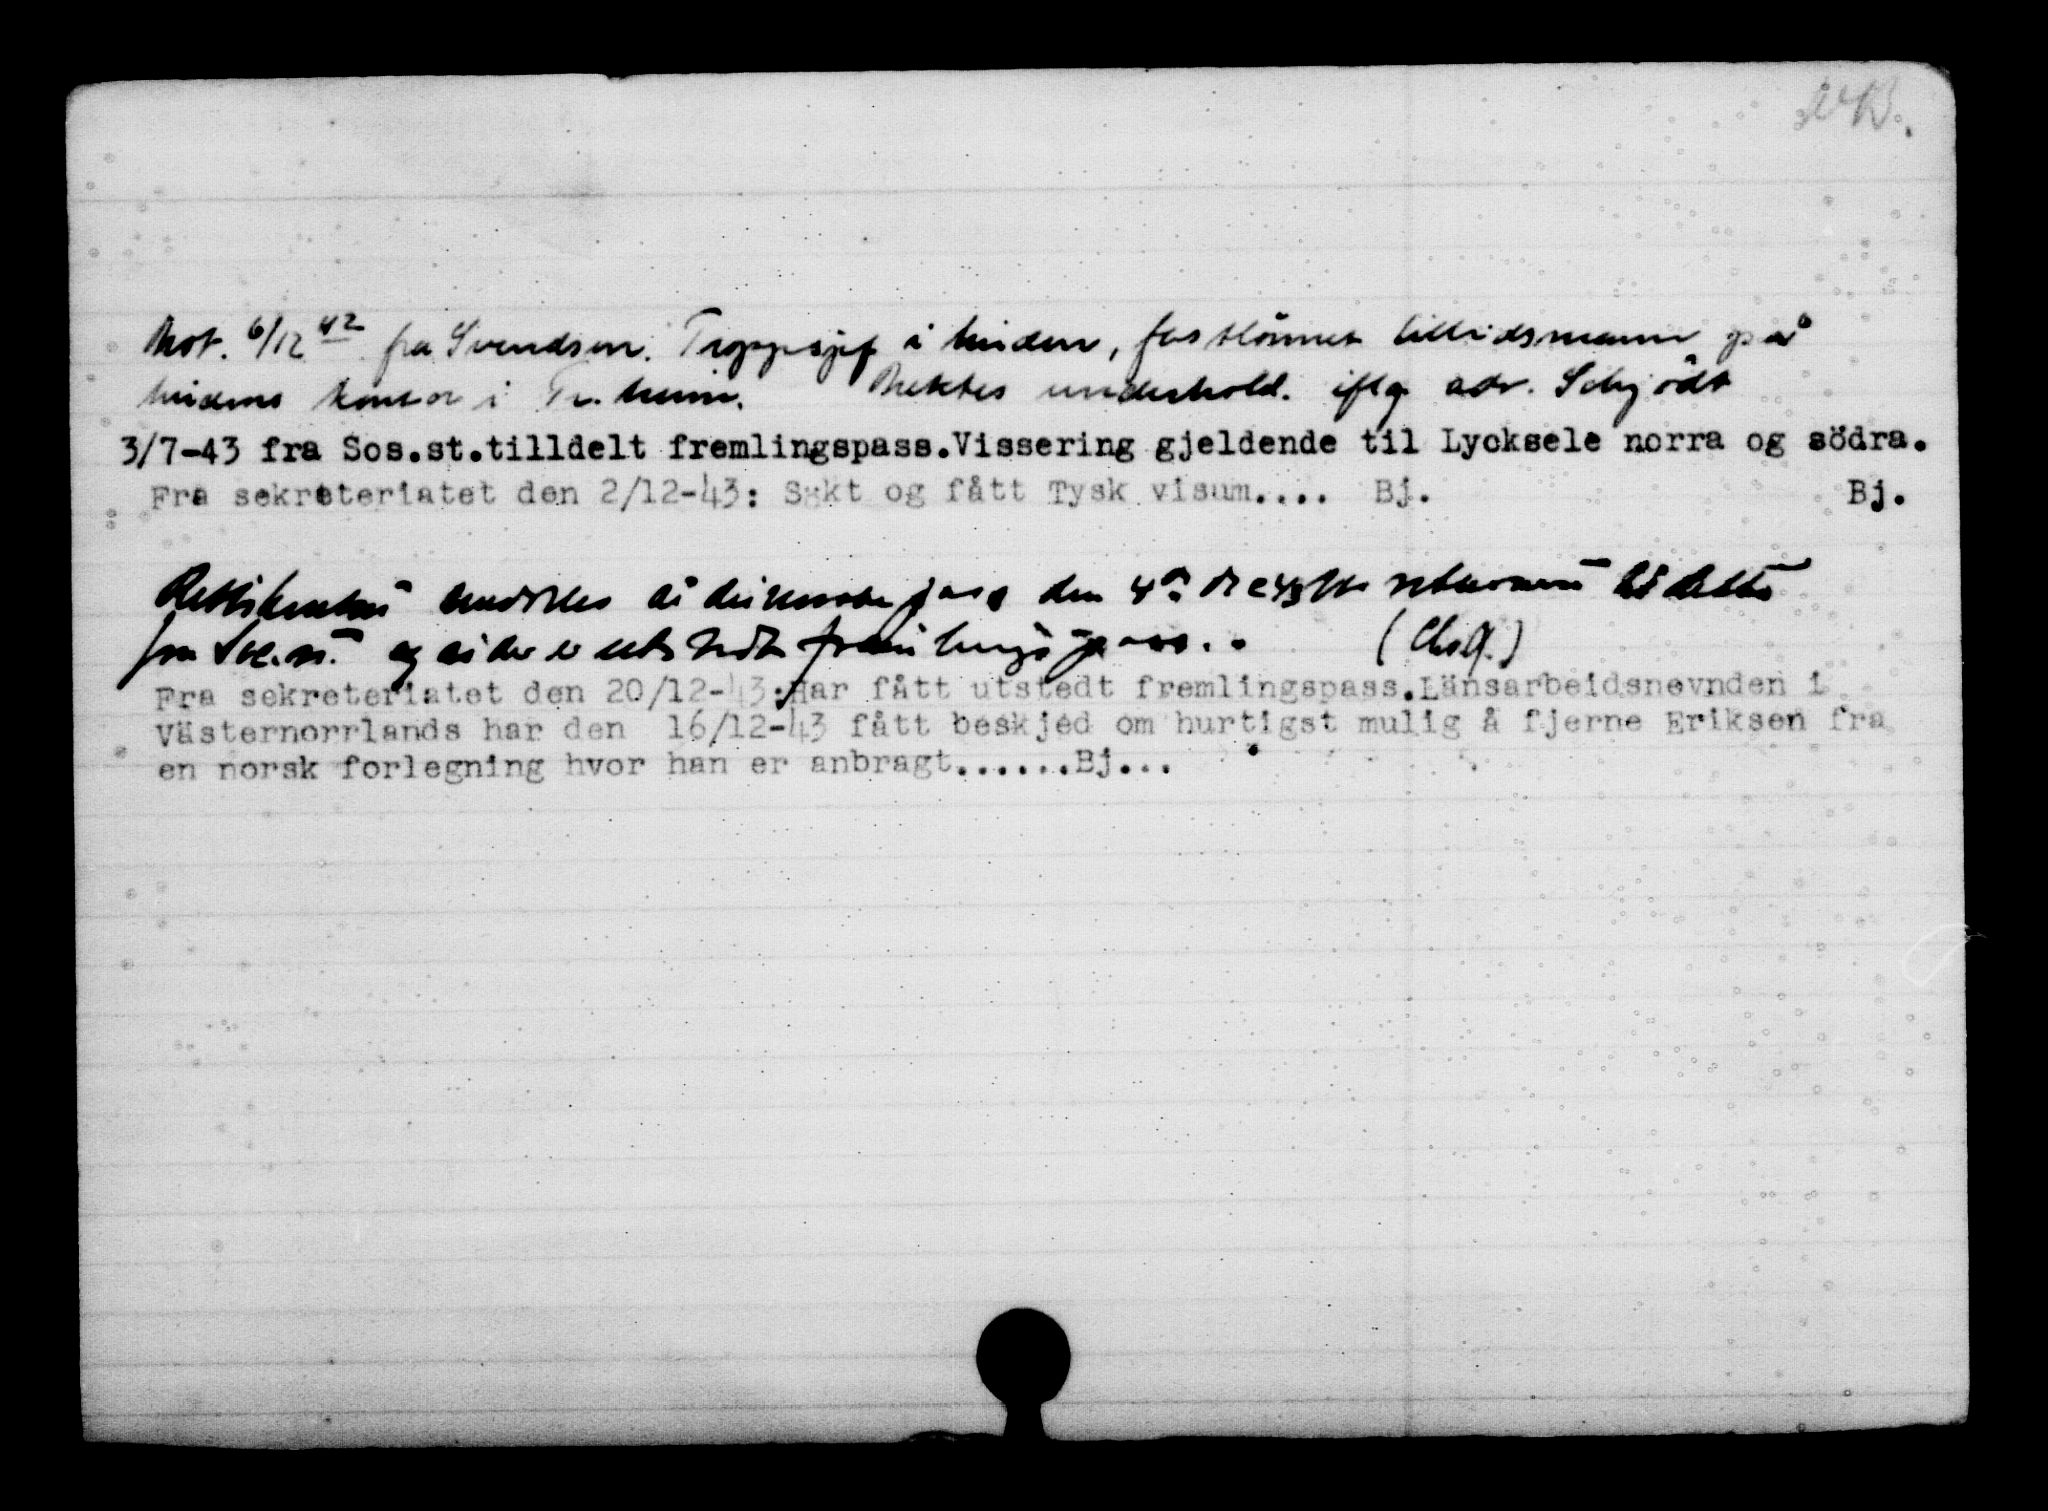 Not. 6/12 42 fra Svendsen. Troppsjef i hirden, fastlönnet tillidsmann på
hirdens kontor i Tr.heim. Nektes underhold. iflg adv. Schjödt
3/7-43 fra Sos.st.tilldelt fremlingspass.Vissering gjeldende til Lycksele norra og södra.
Bj.
Fra sekreteriatet den 2/12-43: Søkt og fått Tysk visum.... Bj.
den 4 43
fra og at der er utstedt fremlingspass..
Fra sekreteriatet den 20/12-43:Har fått utstedt fremlingspass.Länsarbeidsnevnden i
Västernorrlands har den 16/12-43 fått beskjed om hurtigst mulig å fjerne Eriksen fra
en norsk forlegning hvor han er anbragt......Bj...